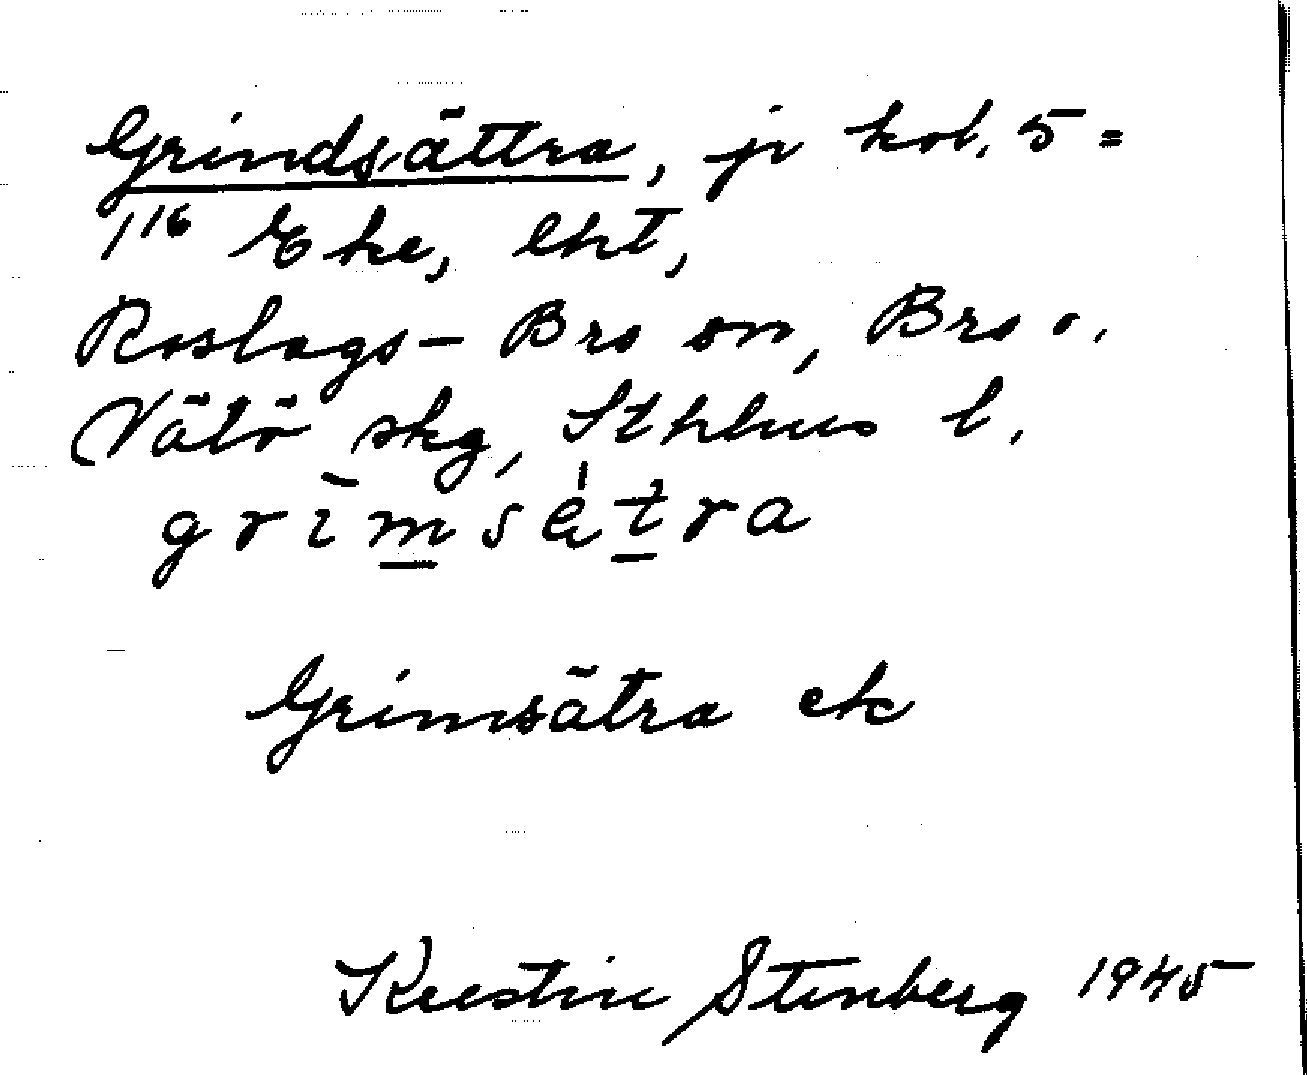 Grindsättra, jr kol. 5=
1¹⁶ Eke, lht,
Roslags-Bro sn, Bro o.
Vätö skg, Sthlms l.
grı̄msätra
Grimsätra ek
Kerstin Stenberg 1945